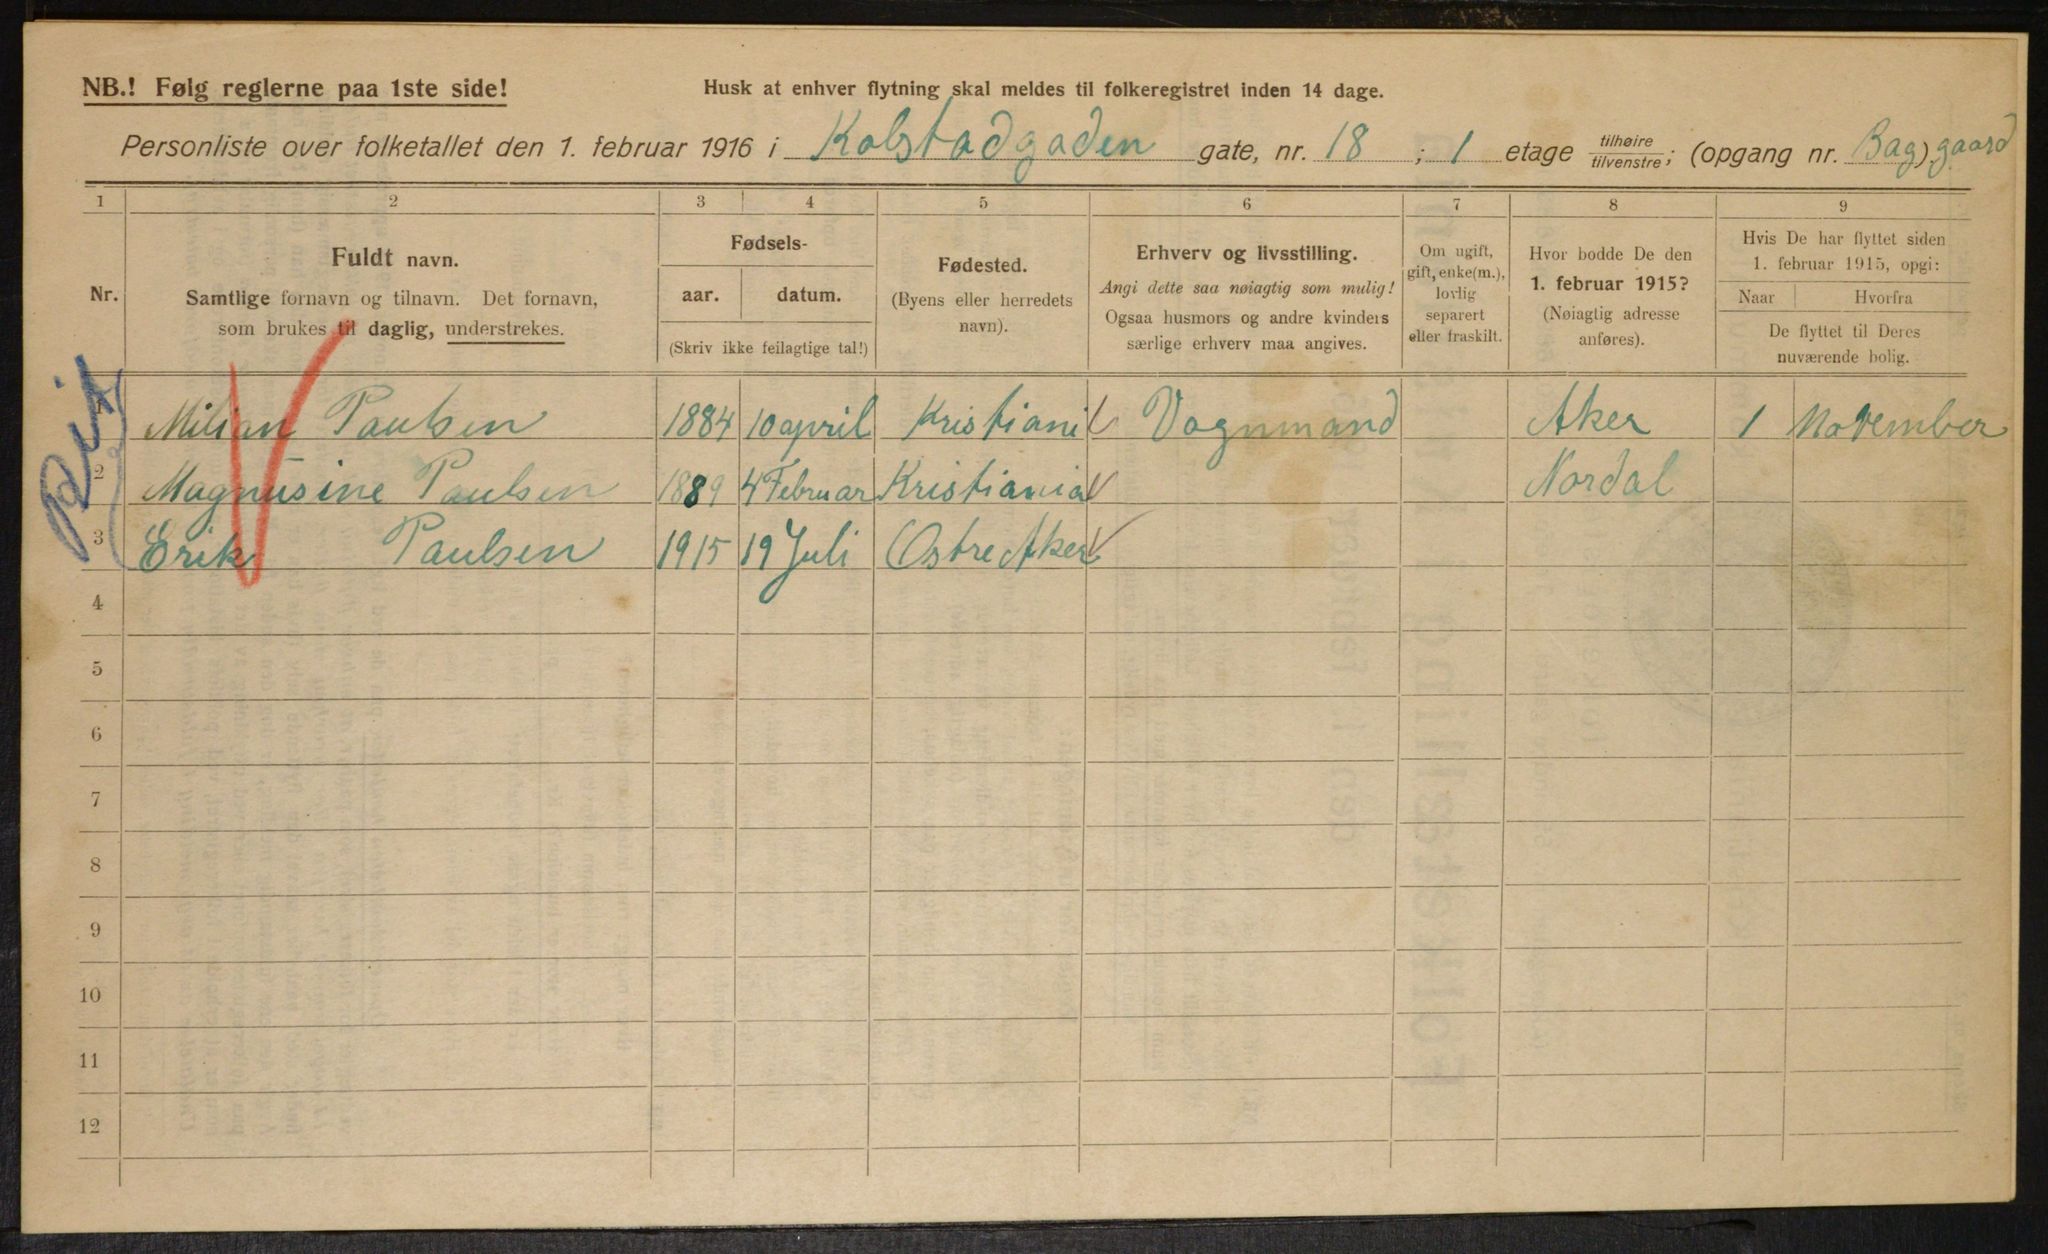 NB.! Følg reglerne paa 1ste side!
Husk at enhver flytning skal meldes til folkeregistret inden 14 dage.
Personliste over folketallet den 1. februar 1916 i Kolstadgaden gate, nr. 18 ; 1 etage tilhøire/tilvenstre; (opgang nr. Bag).gaard
1 2 3 4 5 6 7 8 9
Nr.
Fuldt navn.
Samtlige fornavn og tilnavn. Det fornavn,
som brukes til daglig, understrekes.
Fødsels-
aar. datum.
(Skriv ikke feilagtige tal!)
Fødested.
(Byens eller herredets
navn).
Erhverv og livsstilling.
Angi dette saa nøiagtig som mulig!
Ogsaa husmors og andre kvinders
særlige erhverv maa angives.
Om ugift,
gift, enke(m.),
lovlig
separert
eller fraskilt.
Hvor bodde De den
1. februar 1915?
(Nøiagtig adresse
anføres).
Hvis De har flyttet siden
1. februar 1915, opgi:
Naar Hvorfra
De flyttet til Deres
nuværende bolig.
1 Milian Paulsen 1884 10 april Kristiani Vognmand Aker 1 November
2 Magnusine Paulsen 1889 4 Februar Kristiania Nordal
3 Erik Paulsen 1915 19 Juli Ostre Aker
4
5
6
7
8
9
10
11
12